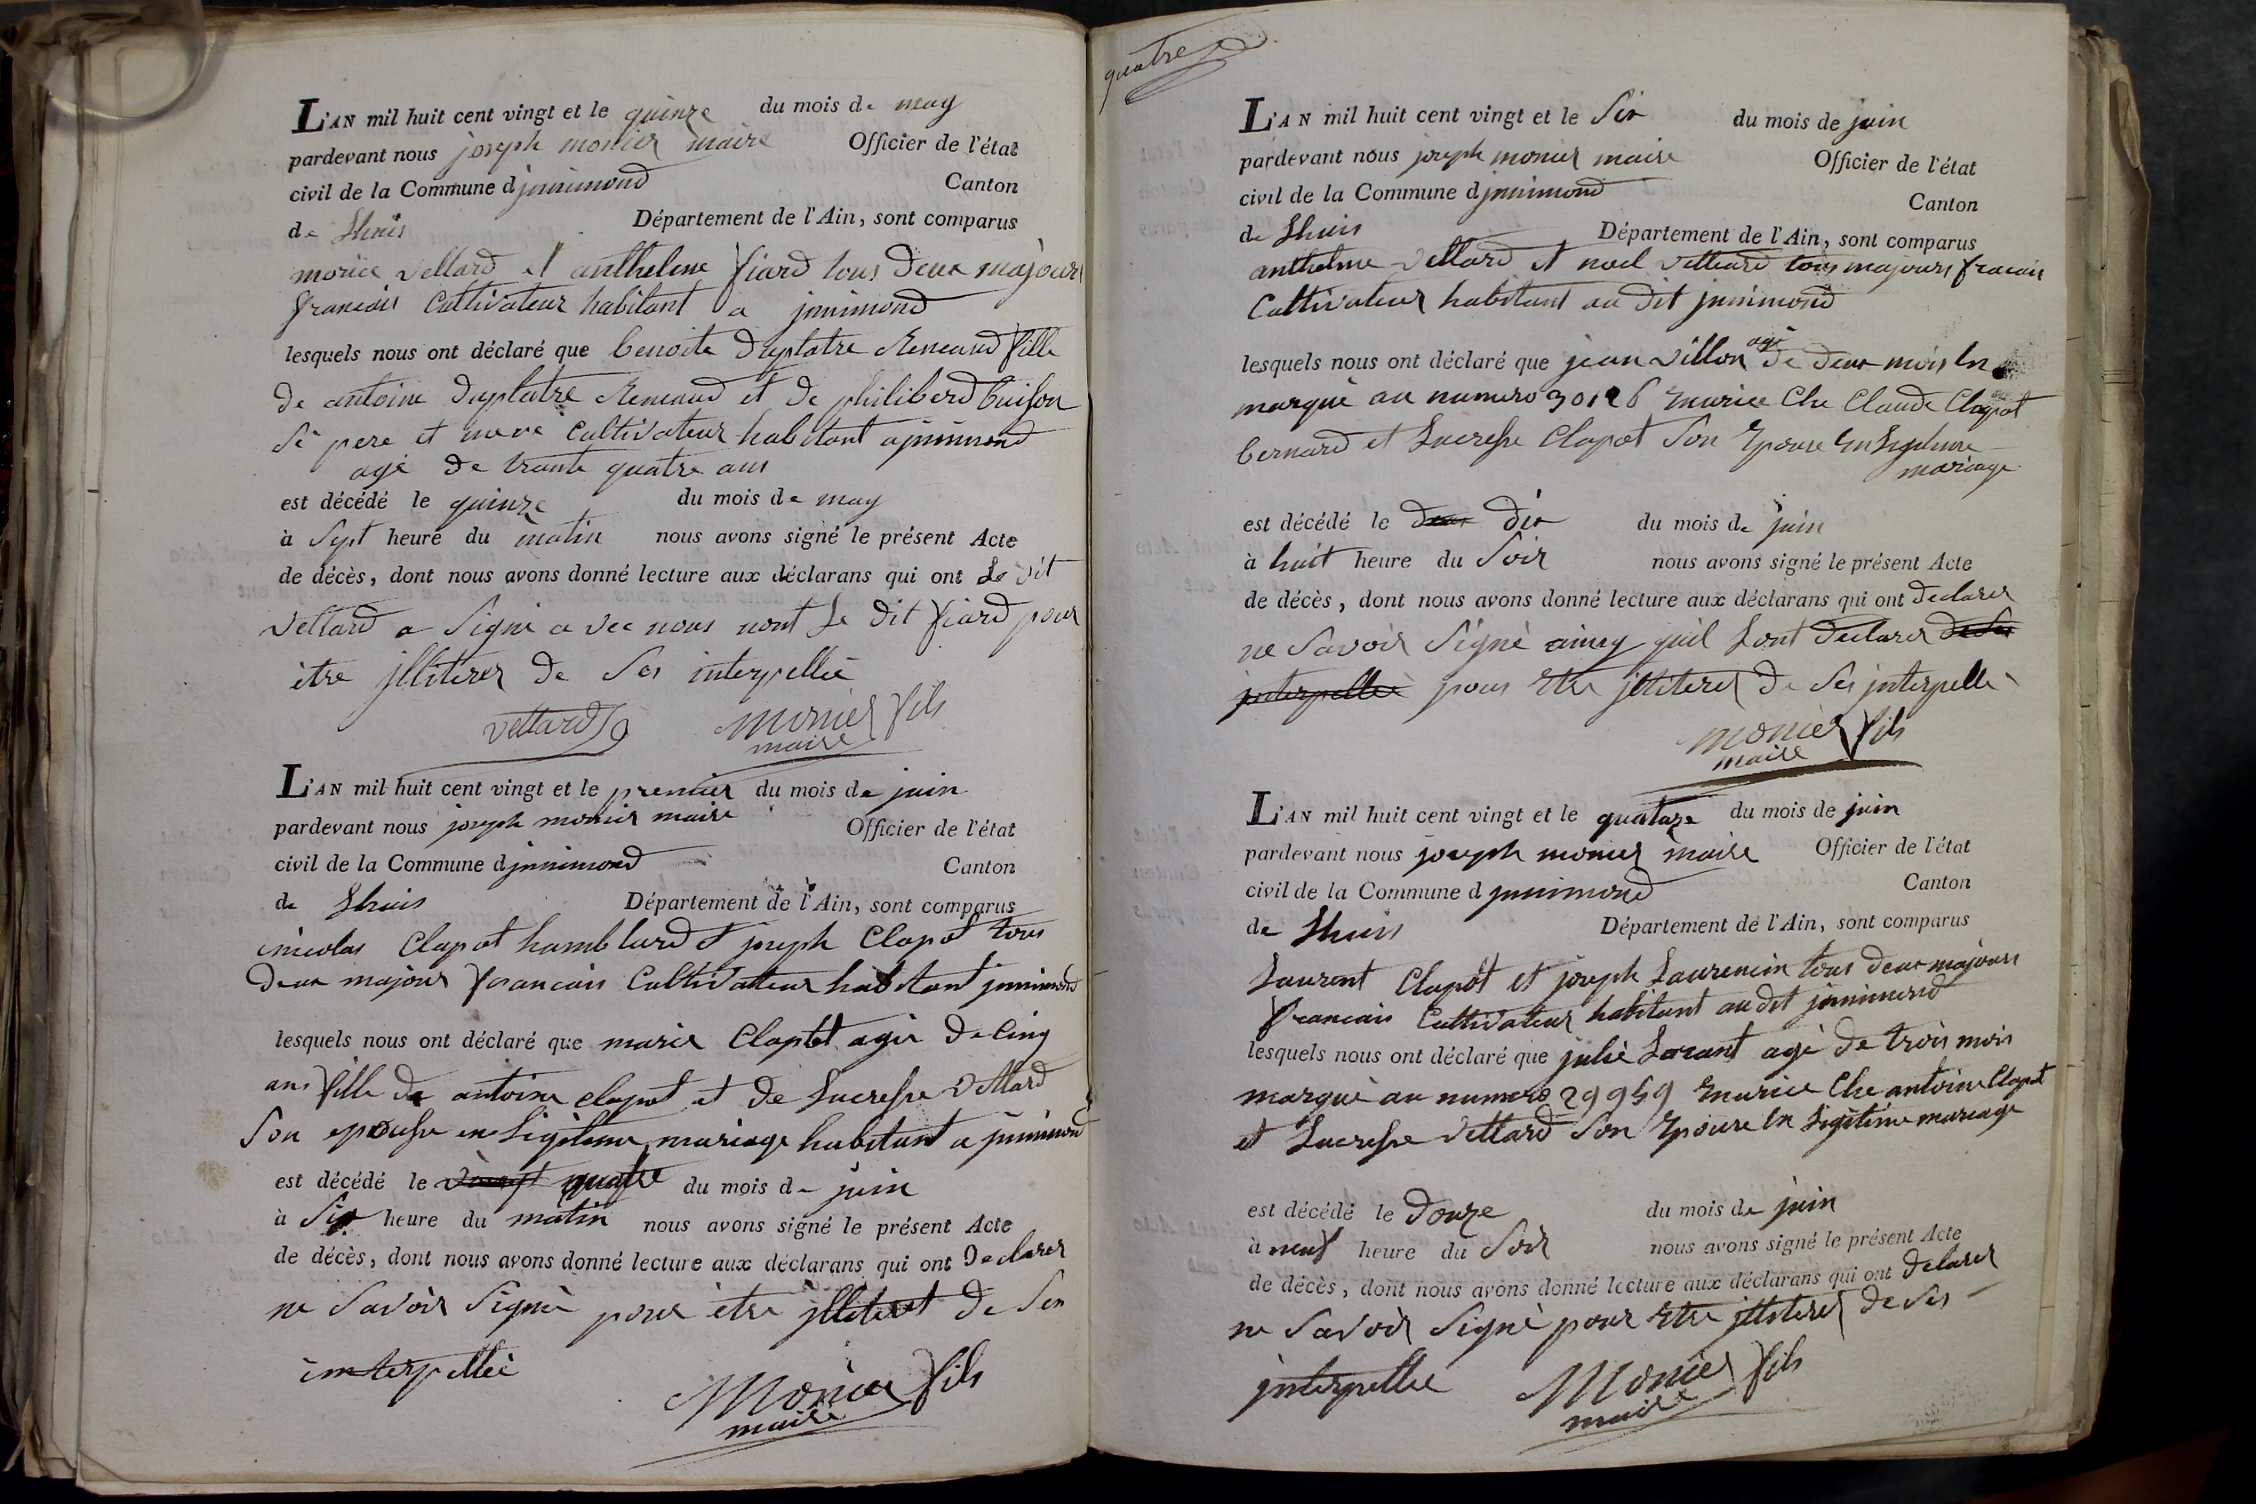 L'AN mil huit cent vingt et le quinze du mois de may
pardevant nous joseph monier maire Officier de l'état
civil de la Commune d jnnimond Canton
de Lhuis Département de l'Ain, sont comparus
morice vettard et anthelme fiard tous deux majours
francais Cultivateur habitant a jnnimond
lesquels nous ont déclaré que benoite Duplatre Reneaud fille
de antoine Duplatre Reneaud et de philiberd buison
sé pere et mere Cultivateur habitant a jnnimond
agé de trante quatre ans
est décédé le quinze du mois de may
à sept heure du matin nous avons signé le présent Acte
de décès, dont nous avons donné lecture aux déclarans qui ont Le dit
vettard a Signé a vec nous nont Le dit fiard pour
étre jlliterer de Ses interpellié
vettard monier fils
maire
L'AN mil huit cent vingt et le premier du mois de juin
pardevant nous joseph monier maire Officier de l'état
civil de la Commune d jnnimond Canton
de Lhuis Département de l'Ain, sont comparus
nicolas Clapot hamblard et joseph Clapot tous
deux majour francais Cultivateur habitant jnnimond
lesquels nous ont déclaré que marie Clapot agée de Cinq
ans fille de antoine clapot et de Lucresse vettard
Son epouse en Ligitime mariage habitant a jnnimond
est décédé le quatre du mois de juin
à Six heure du matin nous avons signé le présent Acte
de décès, dont nous avons donné lecture aux déclarans qui ont Declarer
ne Savoir Signé pour étre jlliteret de Ses
interpellié
Monier fils
maire
quatre
L'AN mil huit cent vingt et le Six du mois de juin
pardevant nous joseph monier maire Officier de l'état
civil de la Commune d jnnimond Canton
de Lhuis Département de l'Ain, sont comparus
anthelme vettard et noel vettard tous majours francais
Cultivateur habitant au dit jnnimond
lesquels nous ont déclaré que jean villon agé de deux mois En
marqué au numero 30126 Enurice Che Claude Clapot
bernard et Lucresse Clapot Son Epouse En Ligitime
mariage
est décédé le deux dix du mois de juin
à huit heure du Soir nous avons signé le présent Acte
de décès, dont nous avons donné lecture aux déclarans qui ont Declarer
ne Savoir Signé ainsy quil Lont Declarer de Ses
interpellié pour Etre jlliterer de Ses jnterpellé
monier fils
maire
L'AN mil huit cent vingt et le quatorze du mois de juin
pardevant nous joseph monier maire Officier de l'état
civil de la Commune d jnnimond Canton
de Lhuis Département de l'Ain, sont comparus
Laurent Clapot et joseph Laurencin tous deux majours
francais Cultivateur habitant au dit jnnimond
lesquels nous ont déclaré que julie Lorant agé de trois mois
marqué au numero 29959 Enurice Che antoine Clapot
et Lucresse vettard Son Epouse En Ligitime mariage
est décédé le douze du mois de juin
à neuf heure du Soir nous avons signé le présent Acte
de décès, dont nous avons donné lecture aux déclarans qui ont Delarer
ne Savoir Signé pour Etre jlliterer de Ses
jnterpellée Monier fils
maire